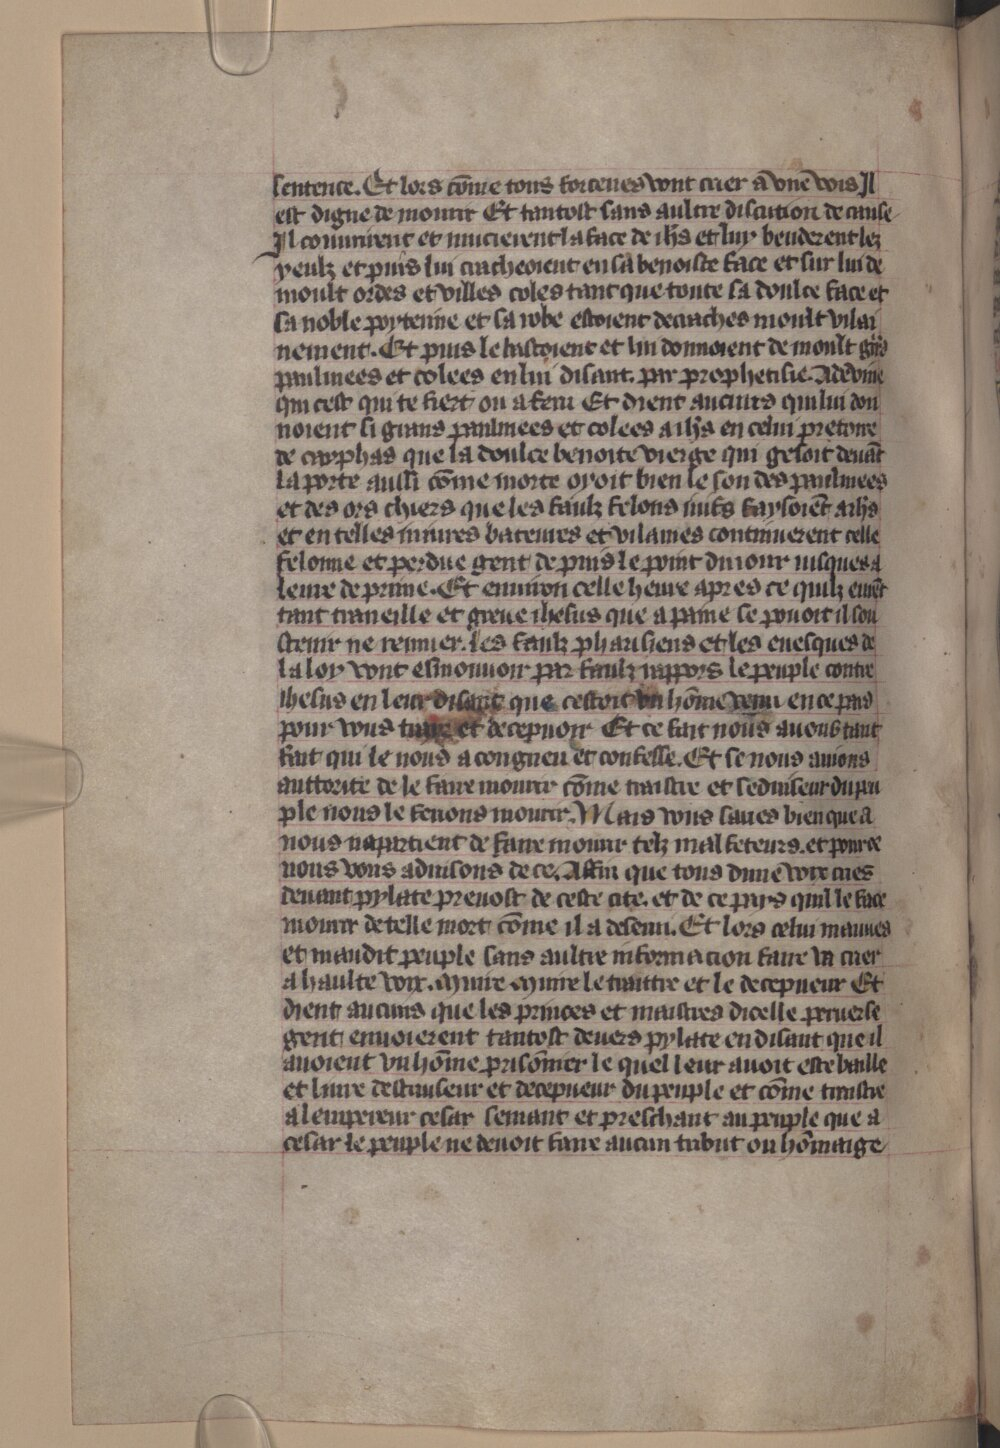 sentence. Et lors cõme tous forcenes vont crier a vne vois Il
est digne de mourir Et tantost sans aultre discution de cause
Il couurirent et mucierent la face de ihs et luy benderent lez
yeulz et puis lui cracheoient en sa benoiste face et sur lui de
moult ordes et villes coles tant que toute sa doulce face et
sa noble poytrine et sa robe estoient decraches moult vilai
nement. Et puis le bastoient et lui donnoient de moult grãs
paulmees et colees en lui disant. par prophetisie. Adeuine
qui cest qui te fiert ou a feru Et dient aucuns qui lui don
noient si grans paulmees et colees a ihs en celui pretoire
de cayphas que la doulce benoite vierge qui gesoit deuãt
la porte aussi cõme morte oyoit bien le son des paulmees
et des ors chiers que les faulz felons iuifs faysoiẽt a ihs
et en telles iniures bateures et vilanies continuerent celle
felonne et perdue gent de puis le point du iour iusques a
leure de prime. Et enuiron celle heure apres ce quilz eurẽt
tant traueille et greue ihesus que a paine se pouoit il sou
stenir ne remuer. les faulz pharisiens et les euesques de
la loy vont esmouuoir par faulz rappors le peuple contre
ihesus en leur disant que cestoit vn hõme venu en ce pais
pour vous et decepuoir Et ce fait nous auons tant
fait qui le nous a congneu et confesse. Et se nous auions
auttorite de le faire mourir cõme traistre et seduiseur du peu
ple nous le ferions mourir. Mais vous saues bien que a
nous napartient de faire mourir telz malfeteurs. et pour ce
nous vous aduisons de ce. Affin que tous dune voix cries
deuant pylate preuost de ceste cite. et de ce pays quil le face
mourir de telle mort cõme il a deserui. Et lors celui mauues
et maudit peuple sans aultre informacion faire va crier
a haulte voix. Muire Muire le traittre et le decepueur Et
dient aucuns que les princes et maistres dicelle peruerse
gent enuoierent tantost deuers pylate en disant que il
auoient vn hõme prisõnier le quel leur auoit este baille
et liure destruiseur et decepueur du peuple et cõme traistre
a lempereur cesar semant et preschant au peuple que a
cesar le peuple ne deuoit faire aucun tribut ou hõmaige